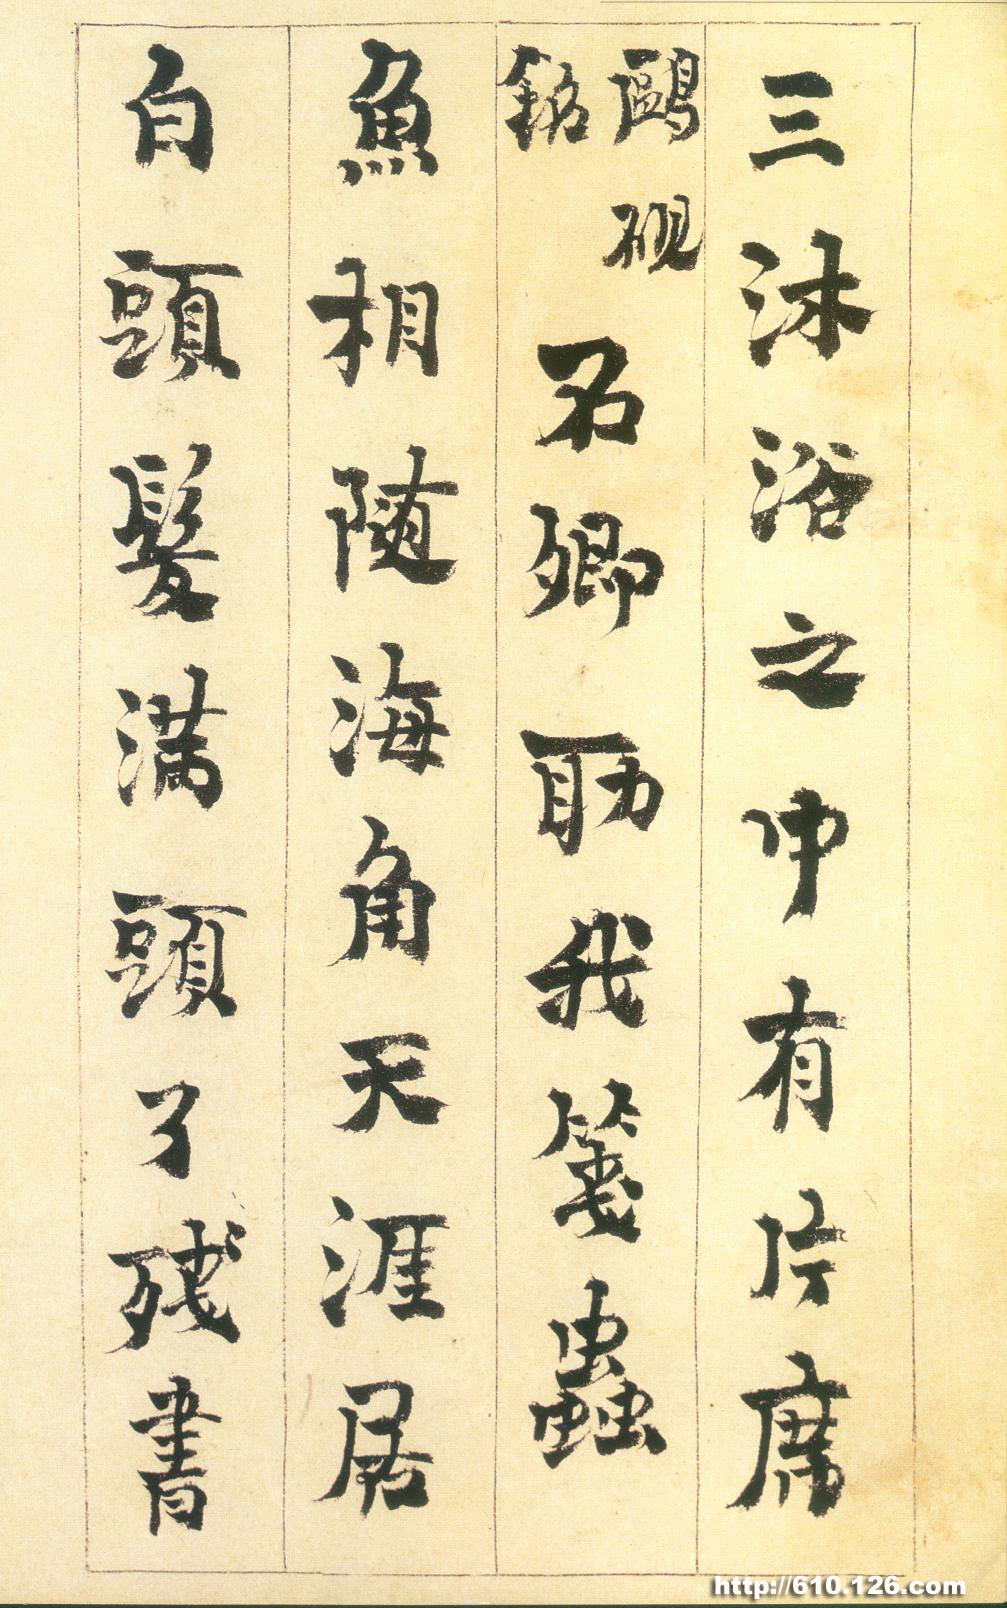 三沐浴之中有片席
鷗砚
銘
石卿助我箋蟲
魚相随海角天涯居
白頭髮満頭了残書
http://610.126.com